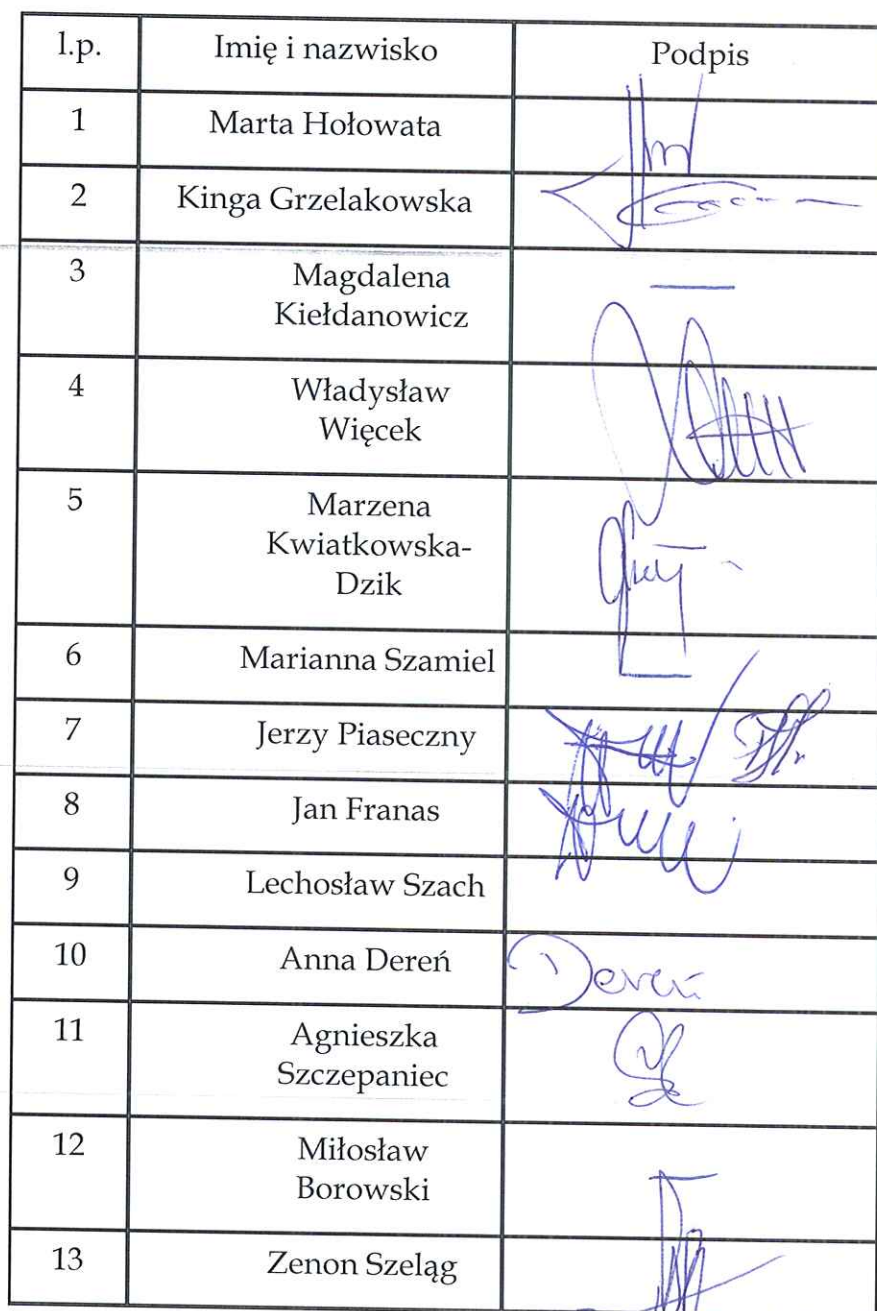 l.p. Imię i nazwisko Podpis
1 Marta Hołowata
2 Kinga Grzelakowska
3 Magdalena
Kiełdanowicz
4 Władysław
Więcek
5 Marzena
Kwiatkowska-
Dzik
6 Marianna Szamiel
7 Jerzy Piaseczny
8 Jan Franas
9 Lechosław Szach
10 Anna Dereń Dereń
11 Agnieszka
Szczepaniec
12 Miłosław
Borowski
13 Zenon Szeląg